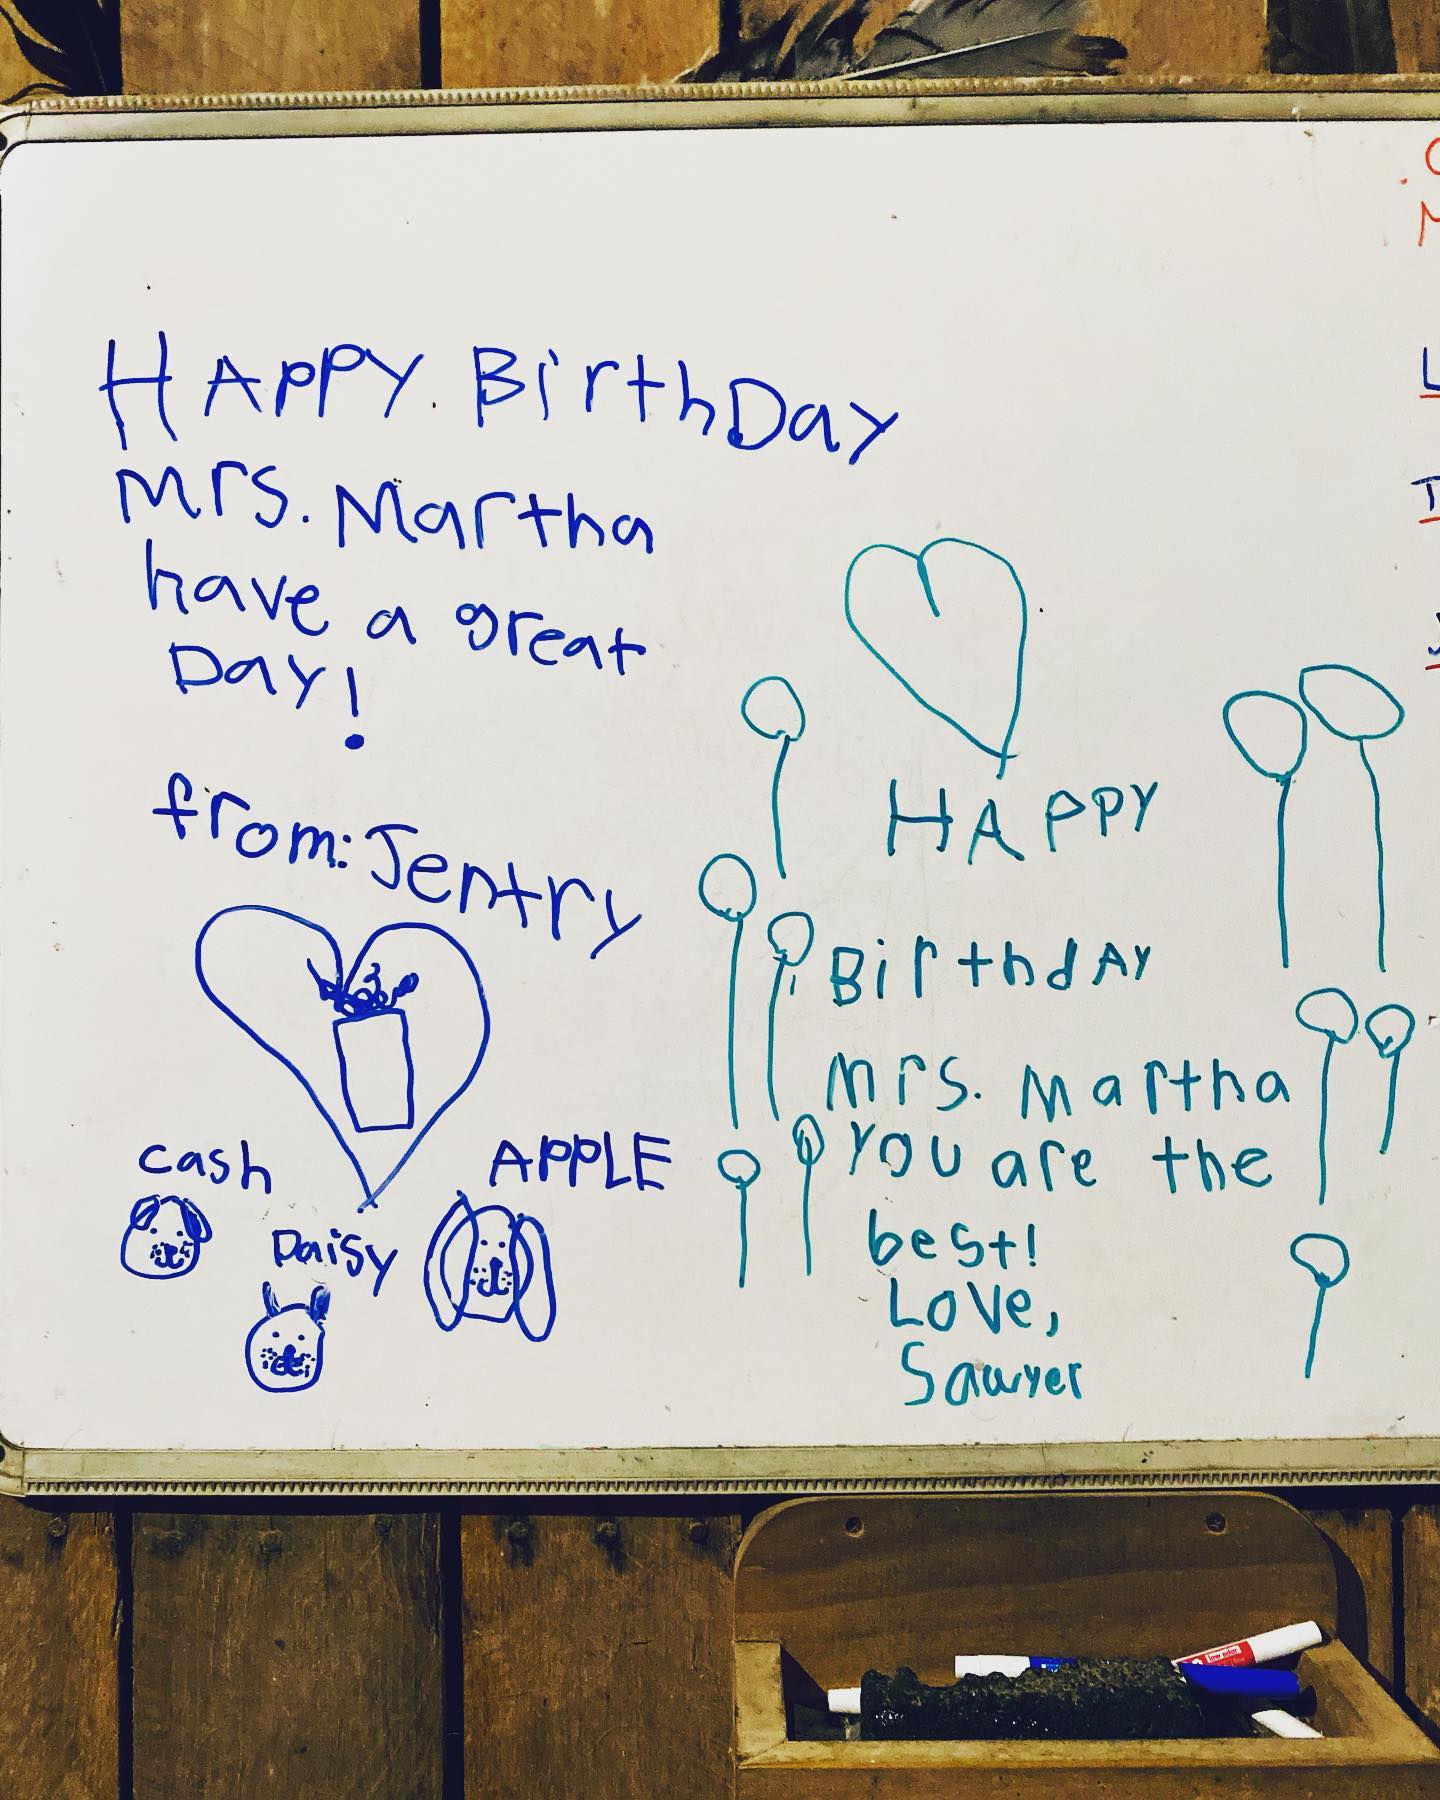 HAPPY BirthDay
Mrs. Martha
have a great
Day!
from: Jentry
cash
APPLE
Daisy
HAPPY
BirthdAy
Mrs. Martha
You are the
best!
Love,
Sawyer